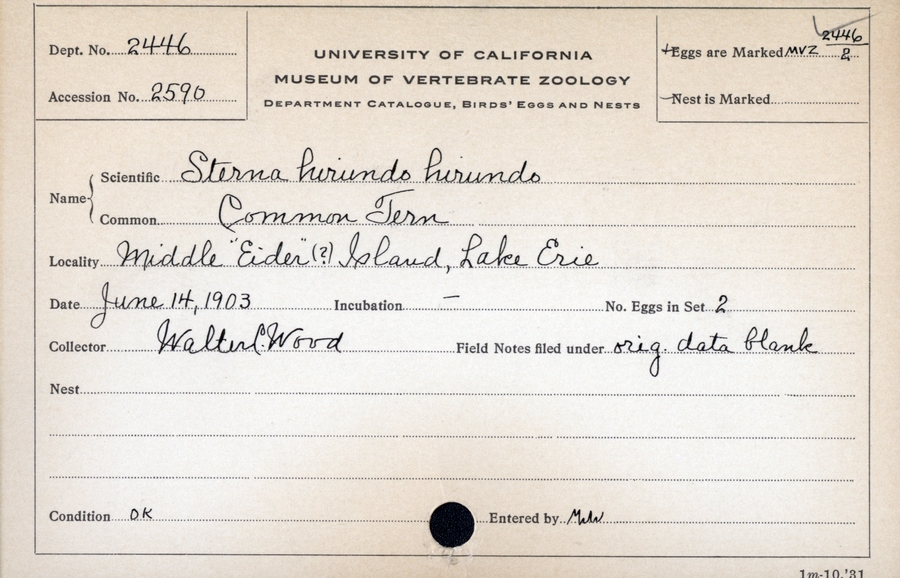 Dept. No. 2446
UNIVERSITY OF CALIFORNIA
MUSEUM OF VERTEBRATE ZOOLOGY
DEPARTMENT CATALOGUE, BIRDS' EGGS AND NESTS
Eggs are Marked MVZ 2446/2
Accession No. 2590
Nest is Marked
Name
Scientific Sterna hirundo hirundo
Common Common Tern
Locality Middle "Eider" (?) Island, Lake Erie
Date June 14, 1903 Incubation — No. Eggs in Set 2
Collector Walter C. Wood Field Notes filed under orig. data blank
Nest
Condition OK Entered by
1m-10,'31